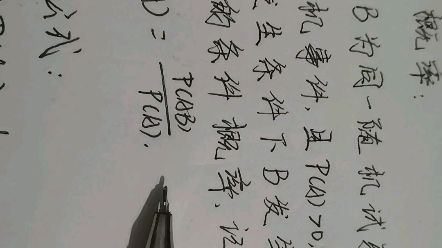 概率:
B为同一随机试
机事件,且P(A)>0
生条件下B发生
的条件概率.记
) = P(AB)/P(A).
公式: